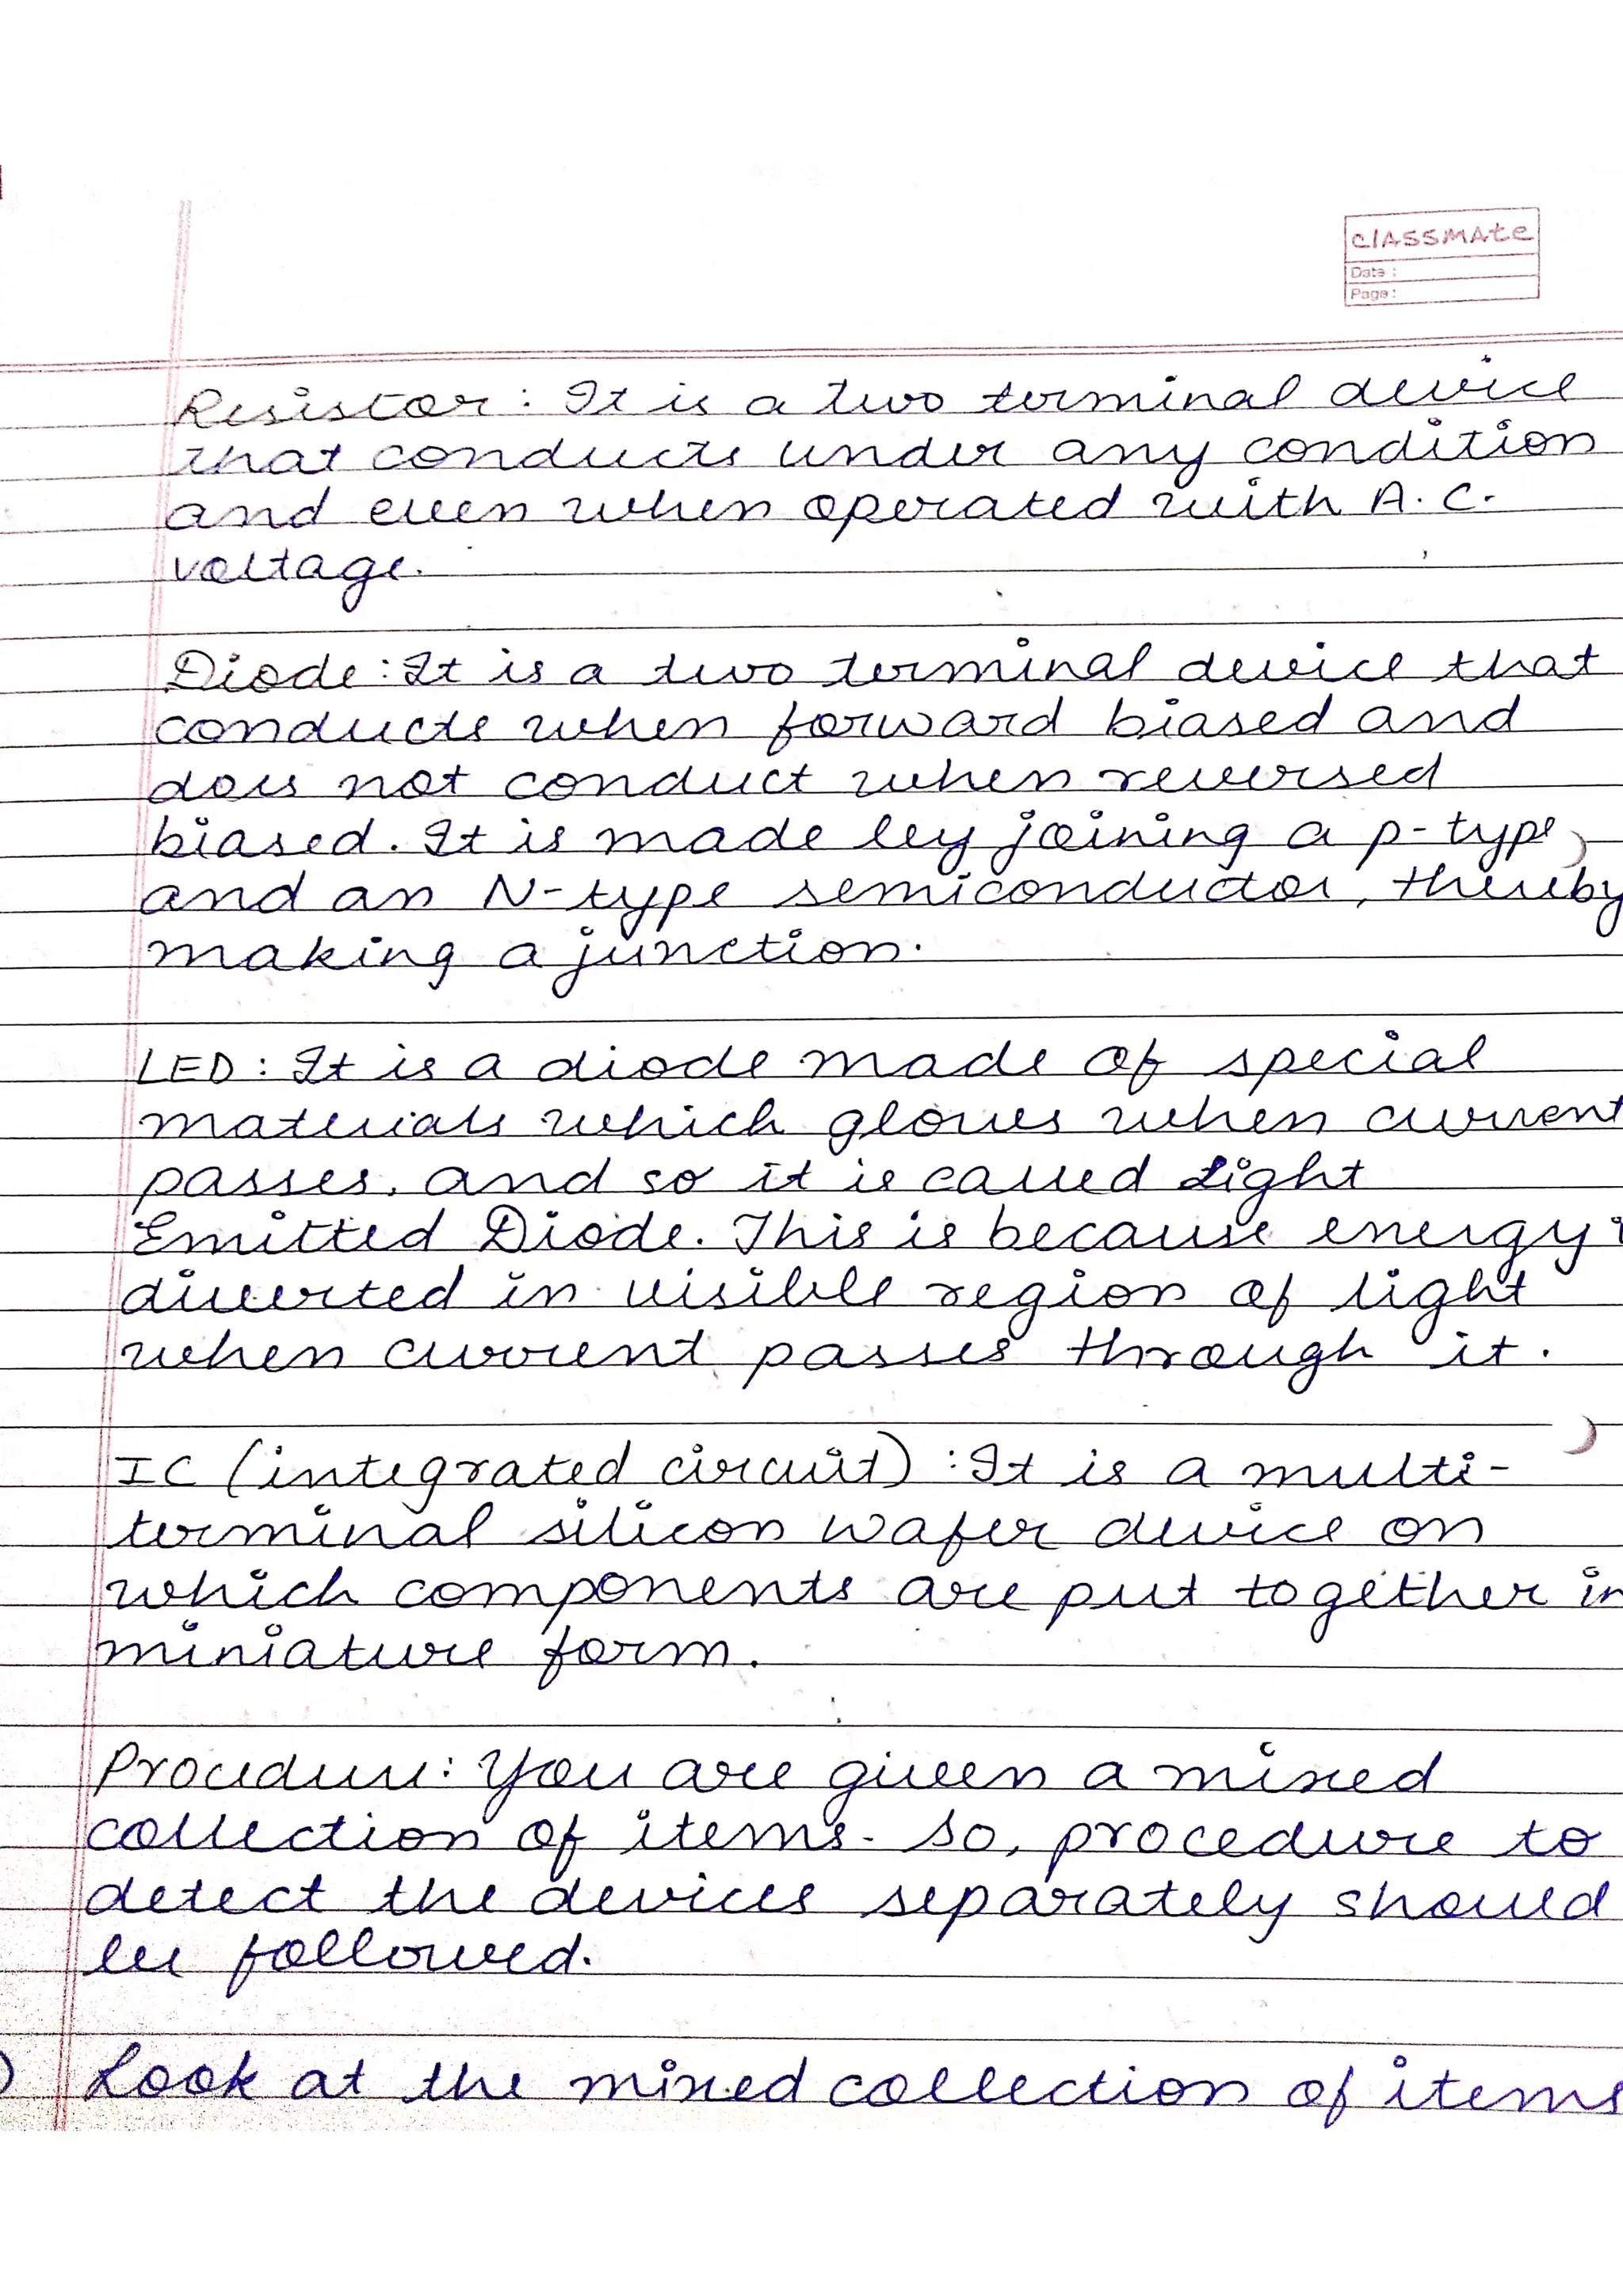 classmate
Date :
Page :
Resistor : It is a two terminal device
that conducts under any condition
and even when operated with A.C.
voltage.
Diode : It is a two terminal device that
conducts when forward biased and
does not conduct when reversed
biased. It is made by joining a p-type
and an N-type semiconductor, thereby
making a junction.
LED : It is a diode made of special
materials which glows when current
passes, and so it is called Light
Emitted Diode. This is because energy i
diverted in visible region of light
when current passes through it.
IC (integrated circuit) : It is a multi-
terminal silicon wafer device on
which components are put together in
miniature form.
Procedure : You are given a mixed
collection of items. So, procedure to
detect the devices separately should
be followed.
) Look at the mixed collection of items